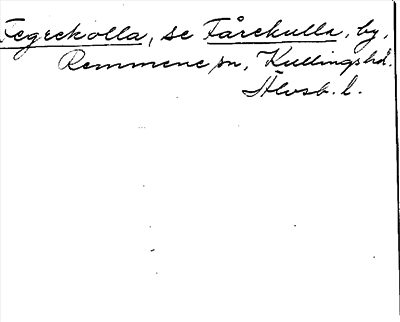 Fegeckolla, se Fårekulla, by,
Remmene sn, Kullings hd.
Älvsb. l.